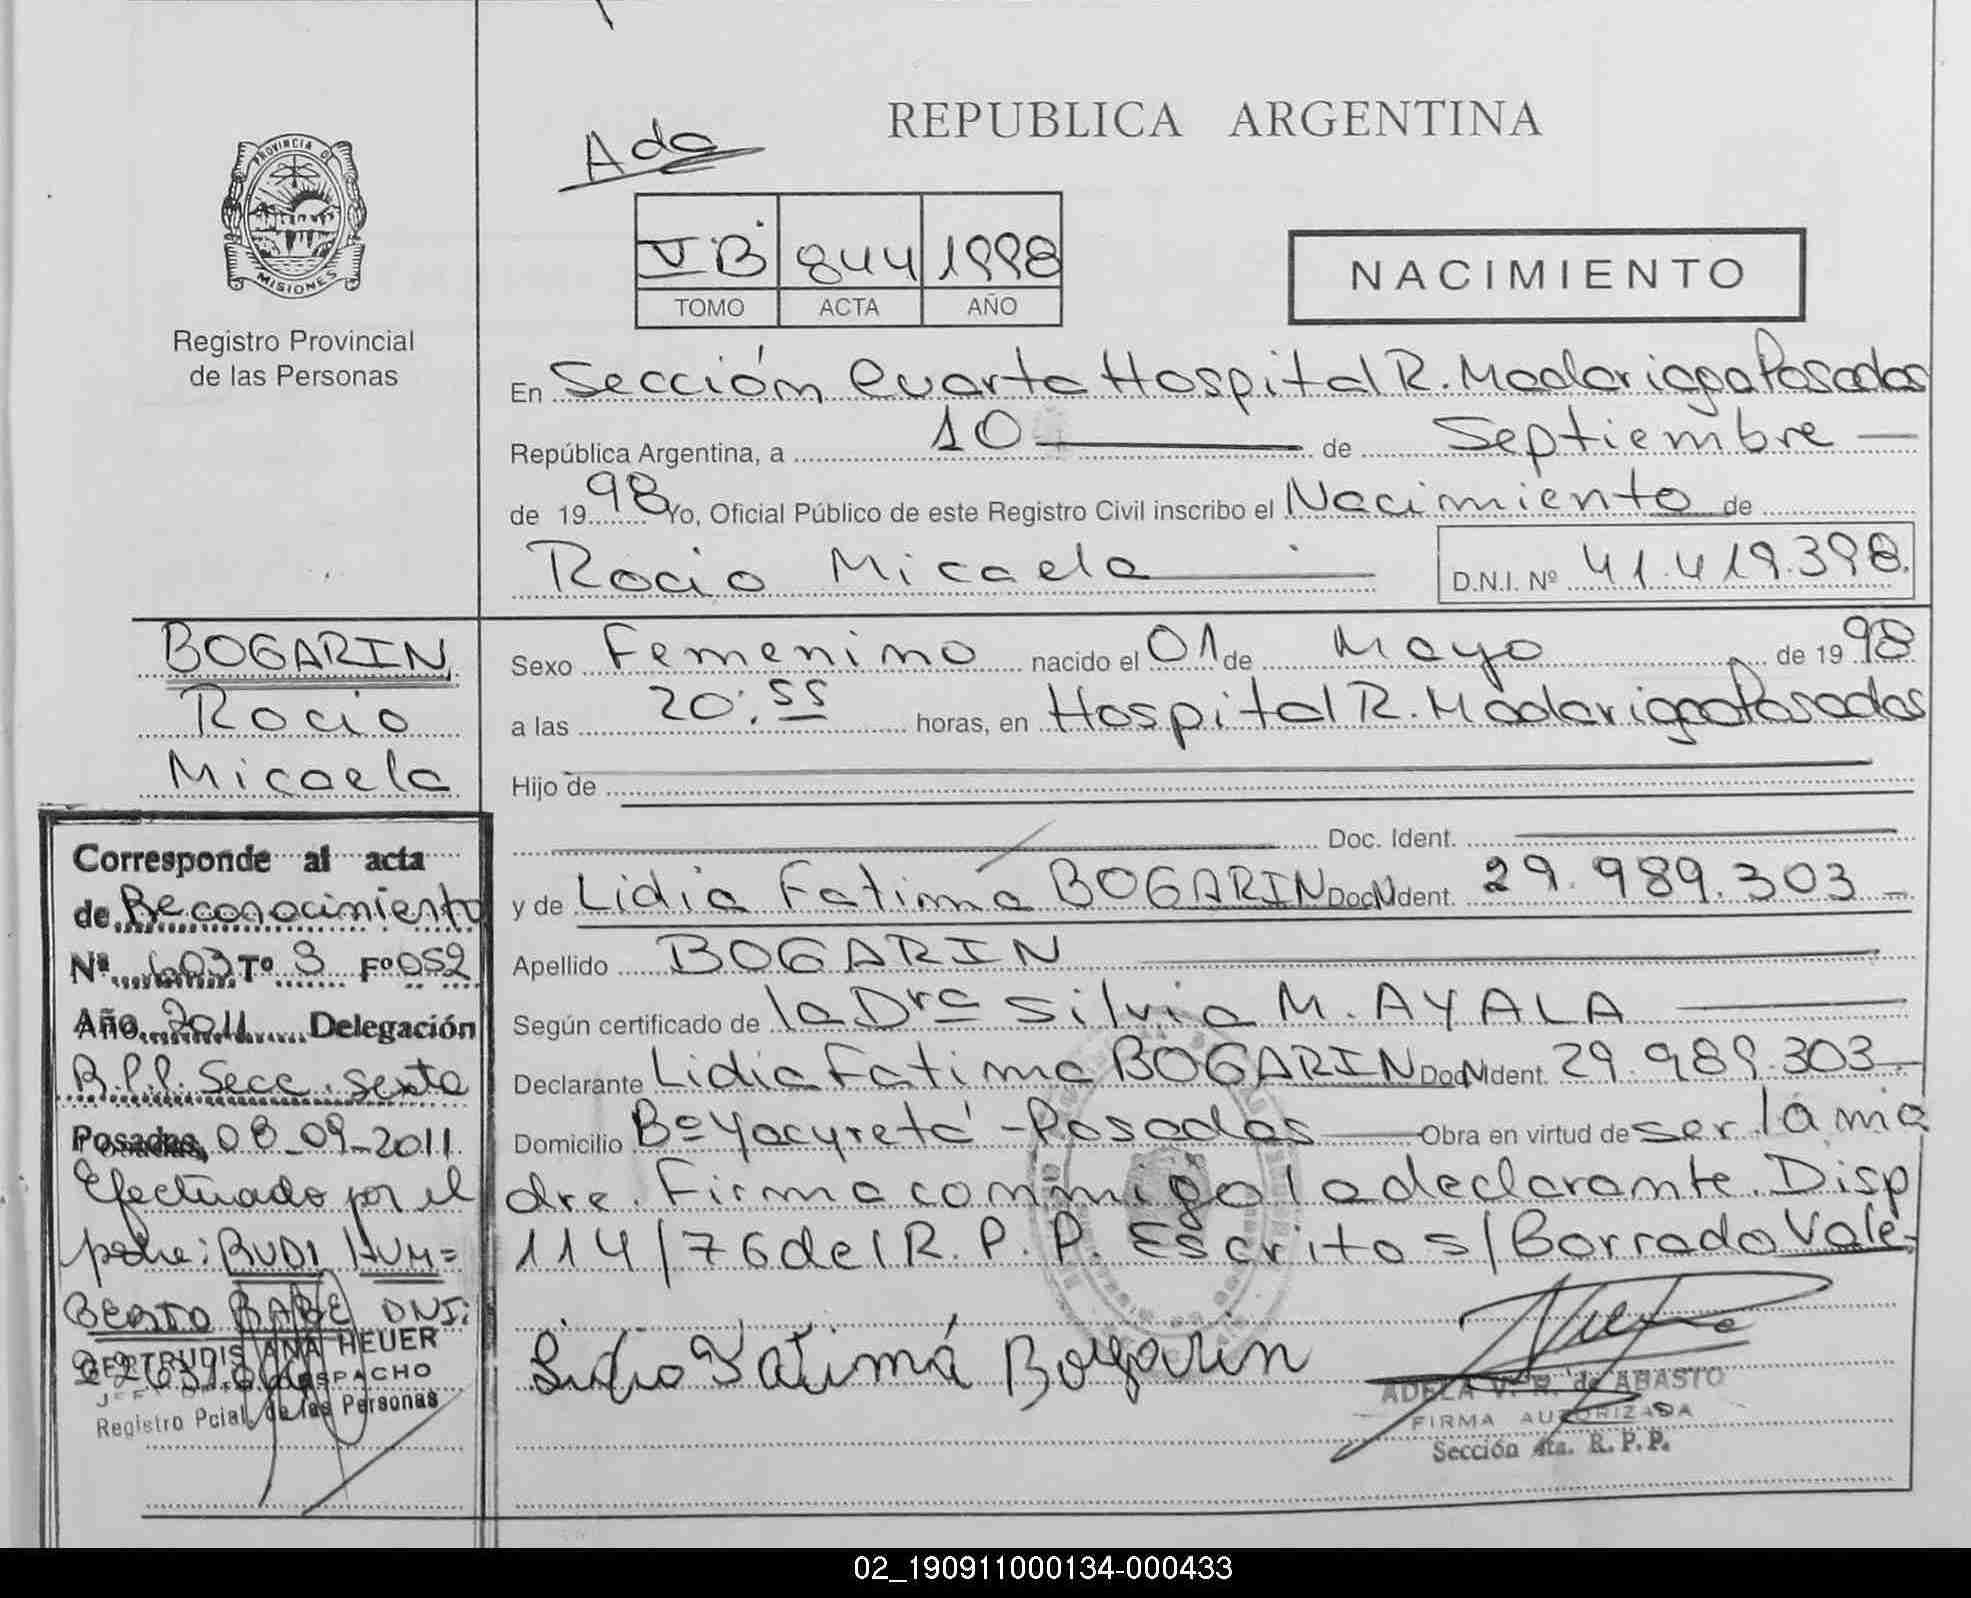 REPUBLICA ARGENTINA
Ada
PROVINCIA DE
MISIONES
Registro Provincial
de las Personas
V B 844 1998
TOMO ACTA AÑO
NACIMIENTO
En Sección Cuarta Hospital R. Madariaga Posadas
República Argentina, a 10 de Septiembre
de 1998 Yo, Oficial Público de este Registro Civil inscribo el Nacimiento de
Rocio Micaela D.N.I. Nº 41.419.398.
BOGARIN
Rocio
Micaela
Sexo Femenino nacido el 01 de Mayo de 1998
a las 20:55 horas, en Hospital R. Madariaga Posadas
Hijo de
Doc. Ident.
y de Lidia Fatima BOGARIN Doc. Ident. 29.989.303
Apellido BOGARIN
Según certificado de la Dra Silvia M. AYALA
Declarante Lidia Fatima BOGARIN Doc. Ident. 29.989.303
Domicilio Bº Yacyretá - Posadas Obra en virtud de ser la ma
dre. Firma conmigo la declarante. Disp
114/76 del R. P. P. Escrito s/ Borrado Vale.
Lidia Fatimá Bogarin
ADELA V. R. de ABASTO
FIRMA AUTORIZADA
Sección 4ta. R. P. P.
Corresponde al acta
de Reconocimiento
Nº 603 Tº 3 Fº 052
Año 2011 Delegación
R.P.P. Secc. Sexta
Posadas, 08-09-2011
Efectuado por el
padre: BUDI HUM=
BERTO DNI:
GERTRUDIS ANA HEUER
DESPACHO
Registro Pcial. de las Personas
02_190911000134-000433